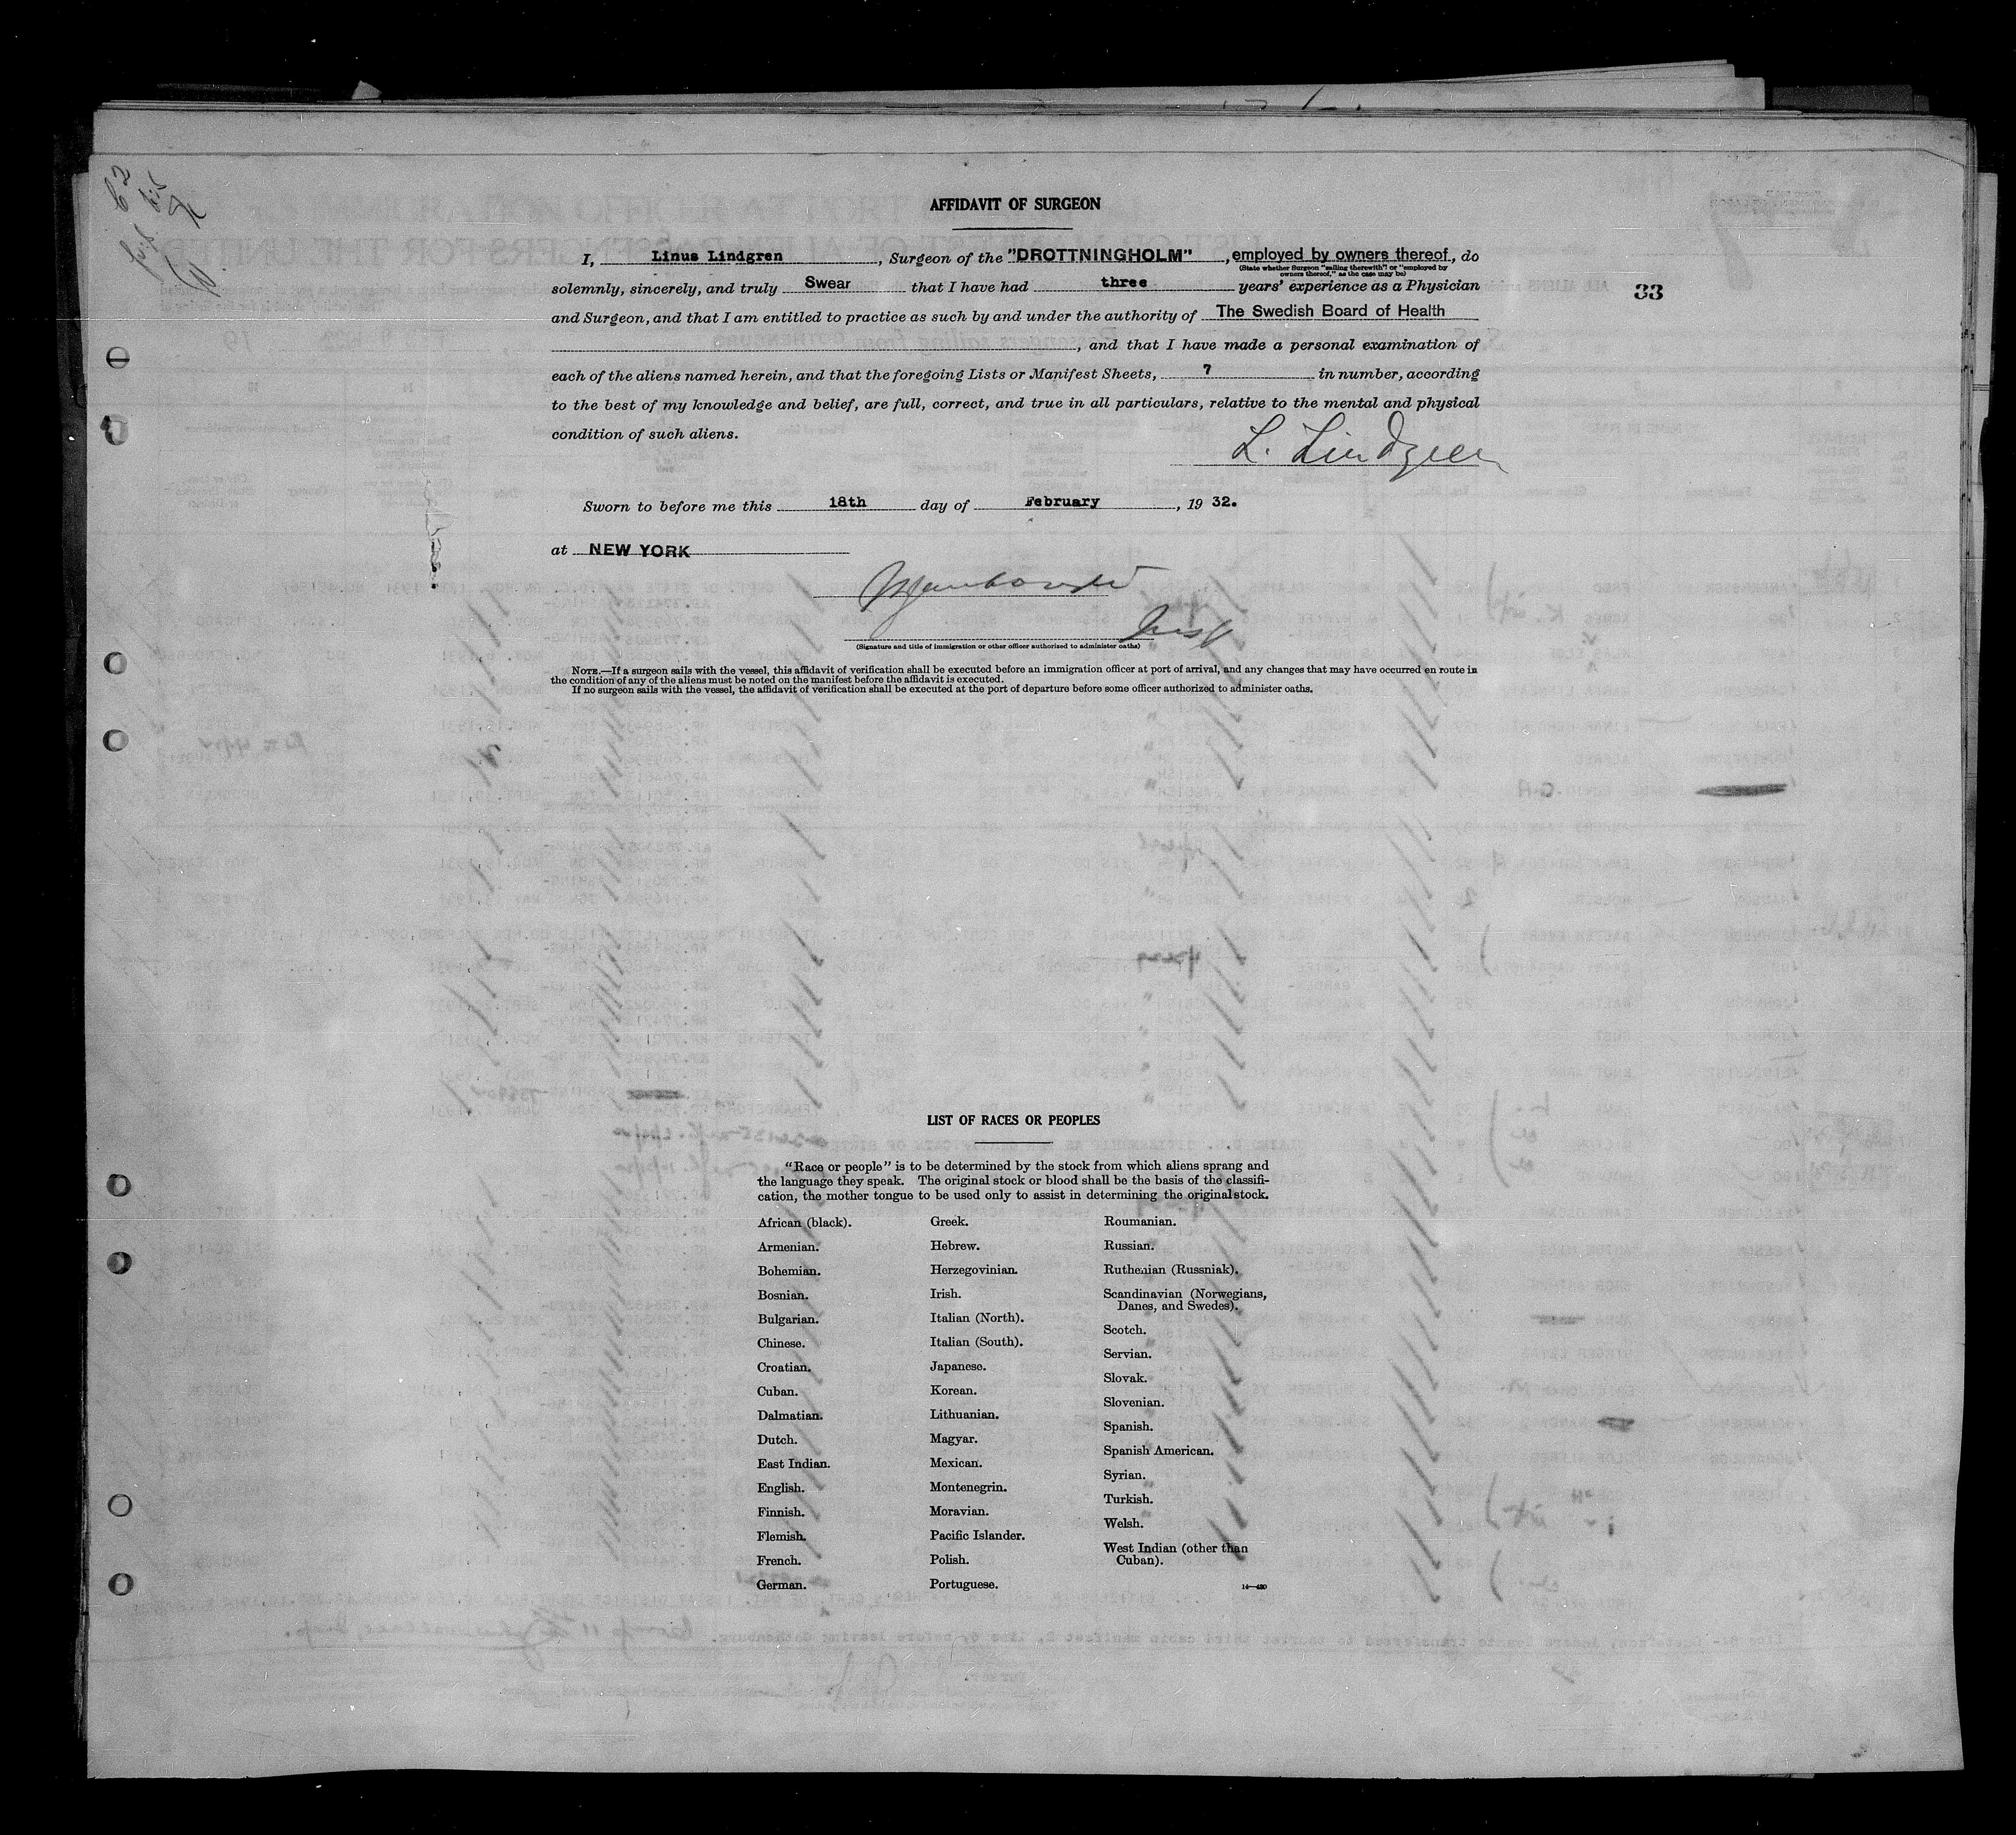 AFFIDAVIT OF SURGEON
I, Linus Lindgren, Surgeon of the "DROTTNINGHOLM", employed by owners thereof, do
(State whether Surgeon "sailing therewith" or "employed by
owners thereof," as the case may be)
solemnly, sincerely, and truly Swear that I have had three years' experience as a Physician
33
and Surgeon, and that I am entitled to practice as such by and under the authority of The Swedish Board of Health
, and that I have made a personal examination of
each of the aliens named herein, and that the foregoing Lists or Manifest Sheets, 7 in number, according
to the best of my knowledge and belief, are full, correct, and true in all particulars, relative to the mental and physical
condition of such aliens.
L. Lindgren
Sworn to before me this 18th day of February, 19 32.
at NEW YORK
Insp
(Signature and title of immigration or other officer authorized to administer oaths)
NOTE.—If a surgeon sails with the vessel, this affidavit of verification shall be executed before an immigration officer at port of arrival, and any changes that may have occurred en route in
the condition of any of the aliens must be noted on the manifest before the affidavit is executed.
If no surgeon sails with the vessel, the affidavit of verification shall be executed at the port of departure before some officer authorized to administer oaths.
LIST OF RACES OR PEOPLES
"Race or people" is to be determined by the stock from which aliens sprang and
the language they speak. The original stock or blood shall be the basis of the classifi-
cation, the mother tongue to be used only to assist in determining the original stock.
African (black).
Armenian.
Bohemian.
Bosnian.
Bulgarian.
Chinese.
Croatian.
Cuban.
Dalmatian.
Dutch.
East Indian.
English.
Finnish.
Flemish.
French.
German.
Greek.
Hebrew.
Herzegovinian.
Irish.
Italian (North).
Italian (South).
Japanese.
Korean.
Lithuanian.
Magyar.
Mexican.
Montenegrin.
Moravian.
Pacific Islander.
Polish.
Portuguese.
Roumanian.
Russian.
Ruthenian (Russniak).
Scandinavian (Norwegians,
Danes, and Swedes).
Scotch.
Servian.
Slovak.
Slovenian.
Spanish.
Spanish American.
Syrian.
Turkish.
Welsh.
West Indian (other than
Cuban).
14—430